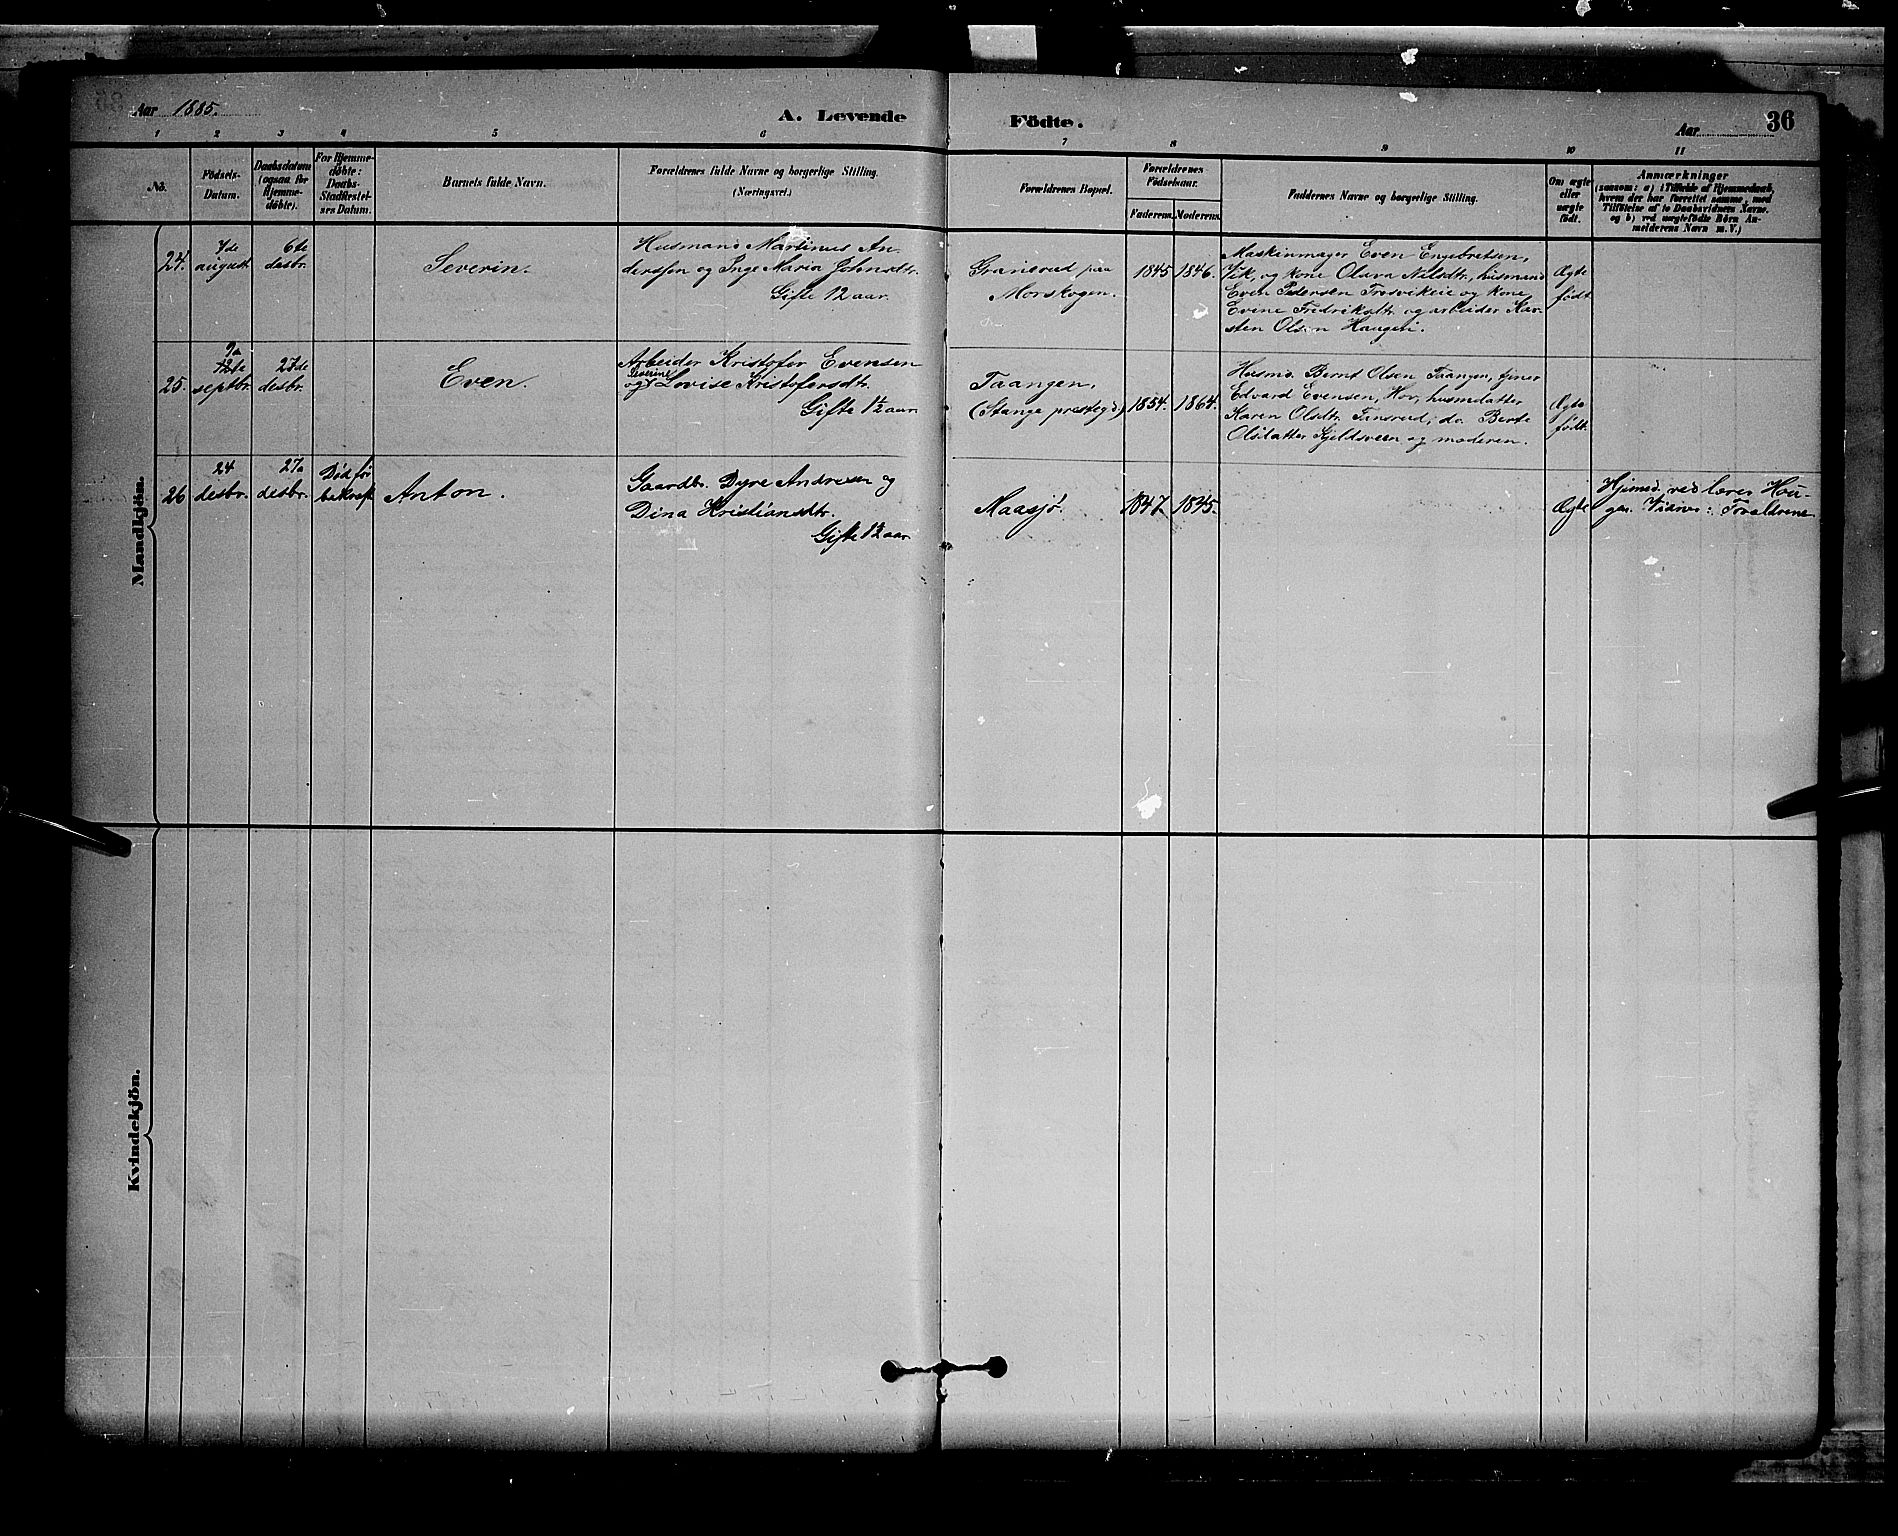 Aar 1885.
A. Levende Födte.
Aar 36
1 2 3 4 5 6 7 8 9 10 11
No.
Födsels-
Datum.
Daabsdatum
(ogsaa for
Hjemme-
döbte).
For Hjemme-
döbte:
Daabs-
Stadfæstel-
ses Datum.
Barnets fulde Navn.
Forældrenes fulde Navne og borgerlige Stilling.
(Næringsvei.)
Forældrenes Bopæl.
Forældrenes
Födselsaar.
Faderens. Moderens.
Faddernes Navne og borgerlige Stilling.
Om ægte
eller
uægte
födt.
Anmærkninger
(saasom: a) i Tilfælde af Hjemmedaab,
hvem der har forrettet samme, med
Tilföielse af to Daabsvidners Navne,
og b) ved uægtefödte Börn An-
melderens Navn m. V.)
Mandkjön.
24.
7de
august
6te
desbr.
Severin.
Husmand Martinus An-
derssen og Inge Maria Johnsdtr.
Gifte 12 aar.
Granerud paa
Morskogen.
1845 1846.
Maskinmager Even Engebretsen,
Vik, og kone Olava Nilsdtr, husmand
Even Pedersen Trosvikeie og kone
Evene Fredriksdtr. og arbeider Kar-
sten Olsen Haugen.
Ægte
født
25.
9a
12te
septbr.
27de
desbr.
Even.
Arbeider Kristofer Evensen
Severine
og Lovise Kristofersdtr.
Gifte 1½ aar.
Taangen,
(Stange prestegd)
1854. 1864.
Husmd. Bernt Olsen Taangen, tjener
Edvard Evensen, Hov, husmdatter
Karen Olsdtr. Finsrud, do Berte
Olsdatter Kjeldsveen og moderen.
Ægte
født.
26
24
desbr.
27a
desbr.
Død før
bekræft
Anton.
Gaardbr. Dyre Andresen og
Dina Kristiansdtr.
Gifte 1½ aar
Maasjø.
1847 1845.
Ægte
Hjemed. ved lærer Hou-
gen. Vidner: Forældrene
Kvindekjön.